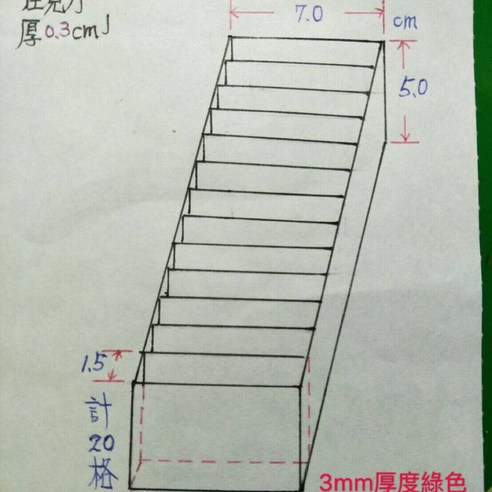 厚0.3cm」
7.0
cm
5.0
1.5
計
20
格
3mm厚度綠色